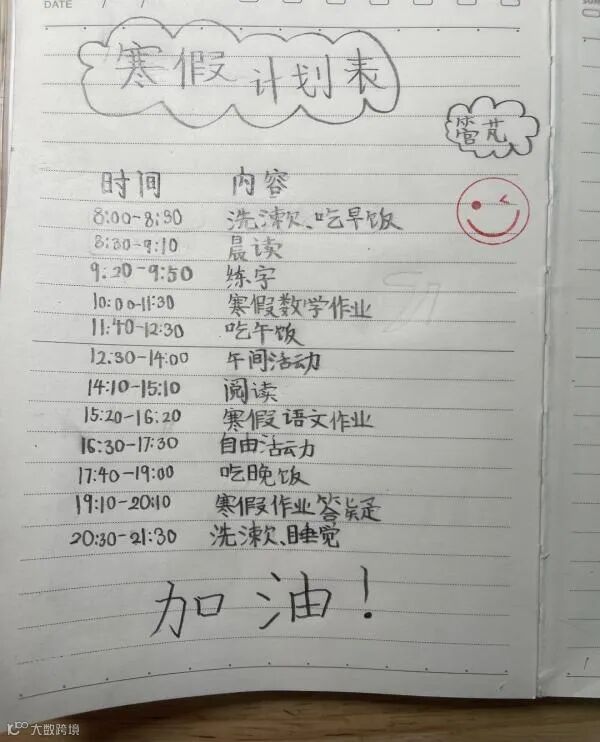 DATE / /
寒假计划表
管芃
时间 内容
8:00-8:30 洗漱、吃早饭
8:30-9:10 晨读
9:20-9:50 练字
10:00-11:30 寒假数学作业
11:40-12:30 吃午饭
12:30-14:00 午间活动
14:10-15:10 阅读
15:20-16:20 寒假语文作业
16:30-17:30 自由活动
17:40-19:00 吃晚饭
19:10-20:10 寒假作业答疑
20:30-21:30 洗漱、睡觉
加油!
大数跨境